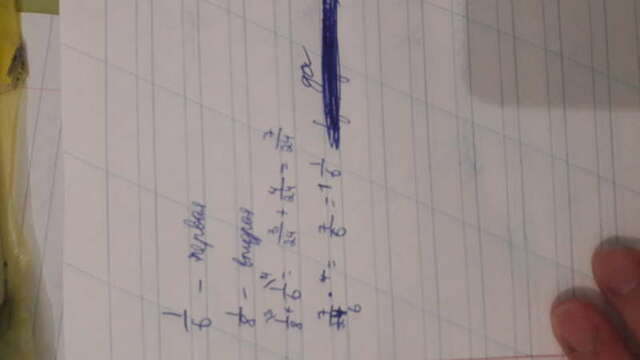 1/6 - первая
1/8 - вторая
1/8 + 1/6 = 3/24 + 4/24 = 7/24
7/24 · 4 = 7/6 = 1 1/6
да